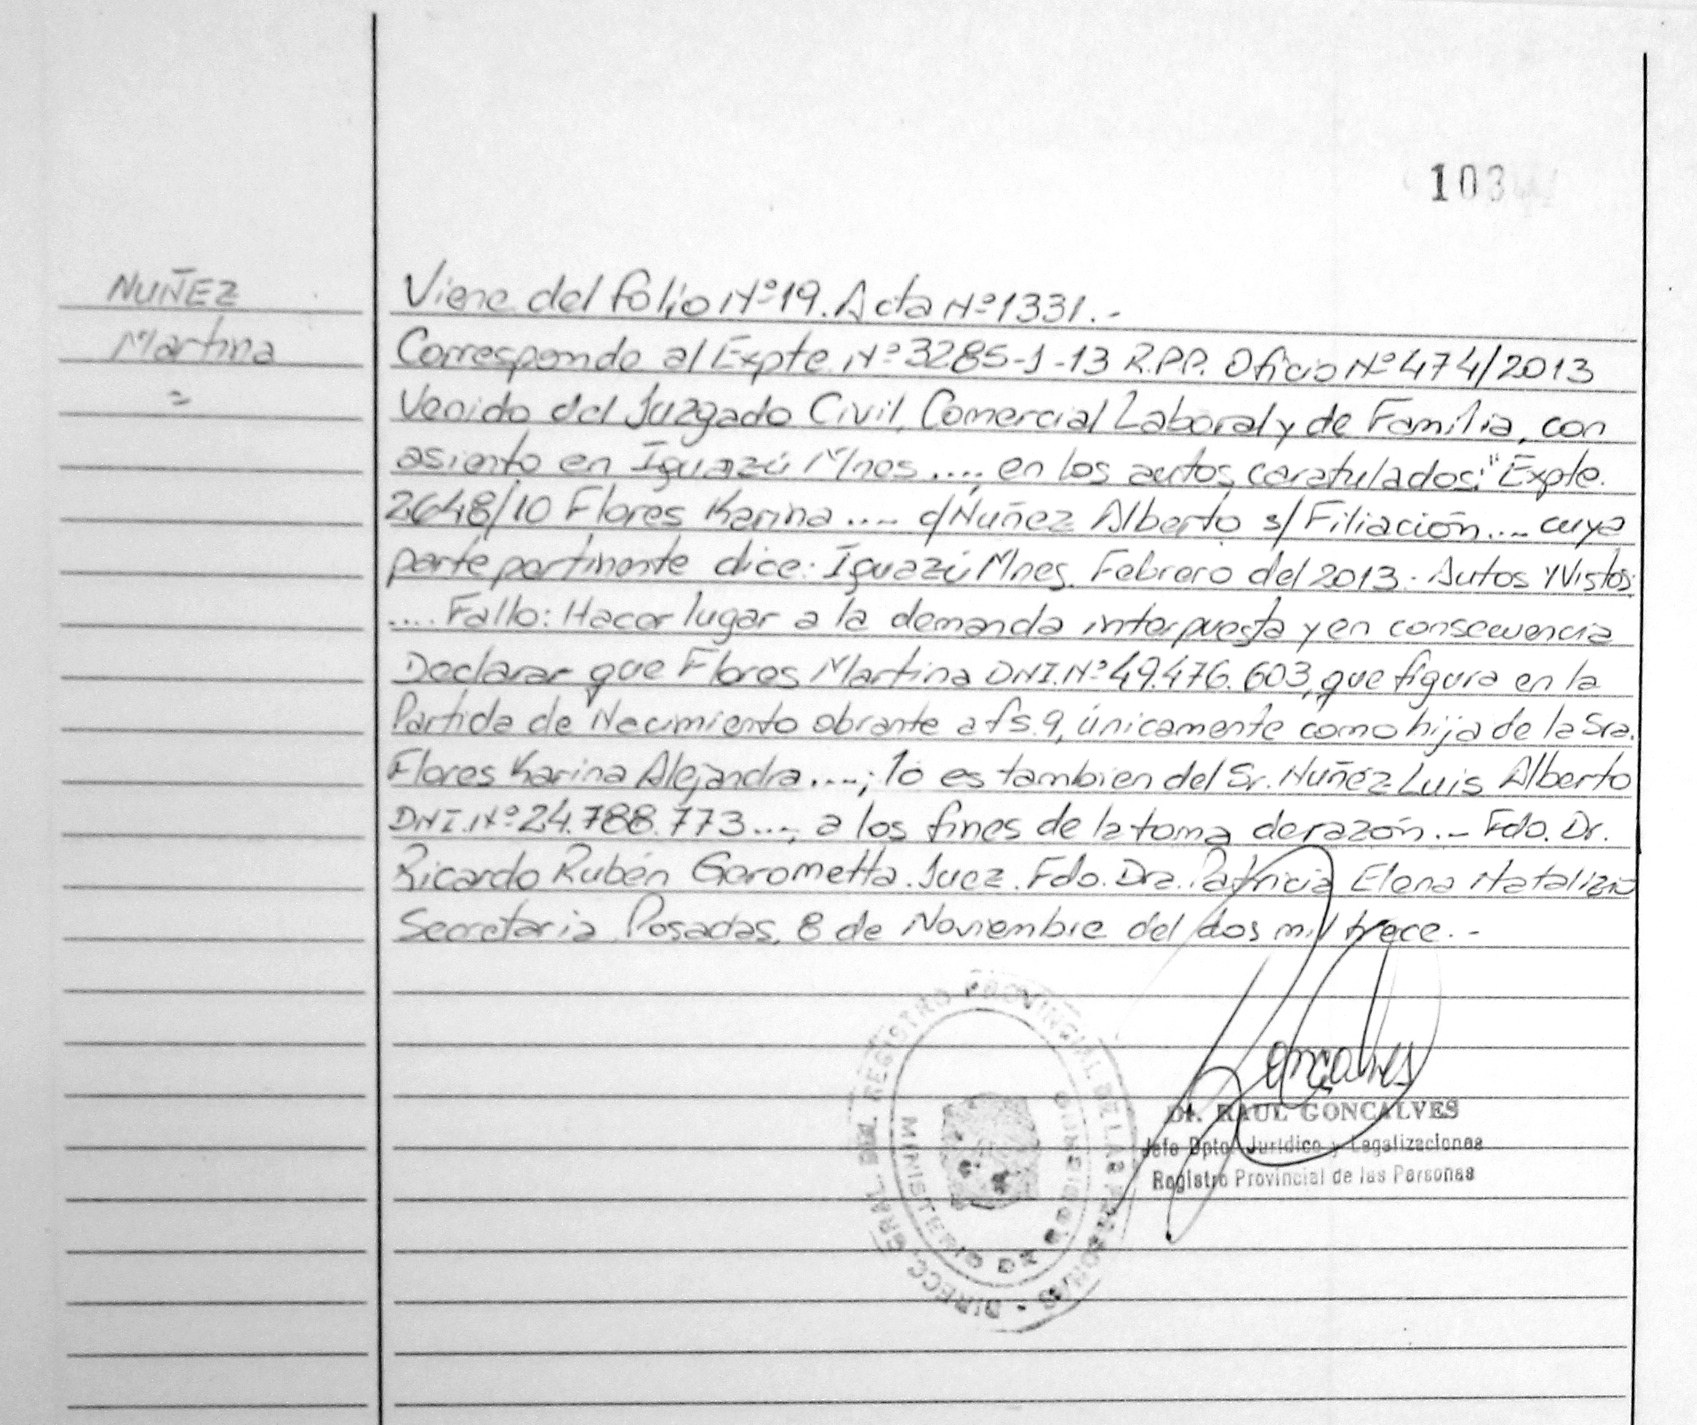 103
NUÑEZ
Martina
=
Viene del folio Nº 19. Acta Nº 1331.-
Corresponde al Expte Nº 3285-J-13 R.P.P. Oficio Nº 474/2013
Venido del Juzgado Civil, Comercial Laboral y de Familia, con
asiento en Iguazú Mnes ...., en los autos caratulados: "Expte.
2648/10 Flores Karina .... c/ Nuñez Alberto s/ Filiación .... cuya
parte pertinente dice: Iguazú Mnes. Febrero del 2013. Autos Y Vistos:
.... Fallo: Hacer lugar a la demanda interpuesta y en consecuencia
Declarar que Flores Martina DNI. Nº 49.476.603, que figura en la
Partida de Nacimiento obrante a fs. 9, únicamente como hija de la Sra.
Flores Karina Alejandra ....; lo es tambien del Sr. Nuñez Luis Alberto
DNI. Nº 24.788.773 ...., a los fines de la toma de razón.- Fdo. Dr.
Ricardo Rubén Gerometta. Juez. Fdo. Dra. Patricia Elena Natalizio
Secretaria Posadas, 8 de Noviembre del dos mil trece.-
Goncalves
Dr. RAUL GONCALVES
Jefe Dpto. Jurídico y Legalizaciones
Registro Provincial de las Personas
DIRECC. GRAL. DEL REGISTRO PROVINCIAL DE LAS PERSONAS
MINISTERIO DE GOBIERNO